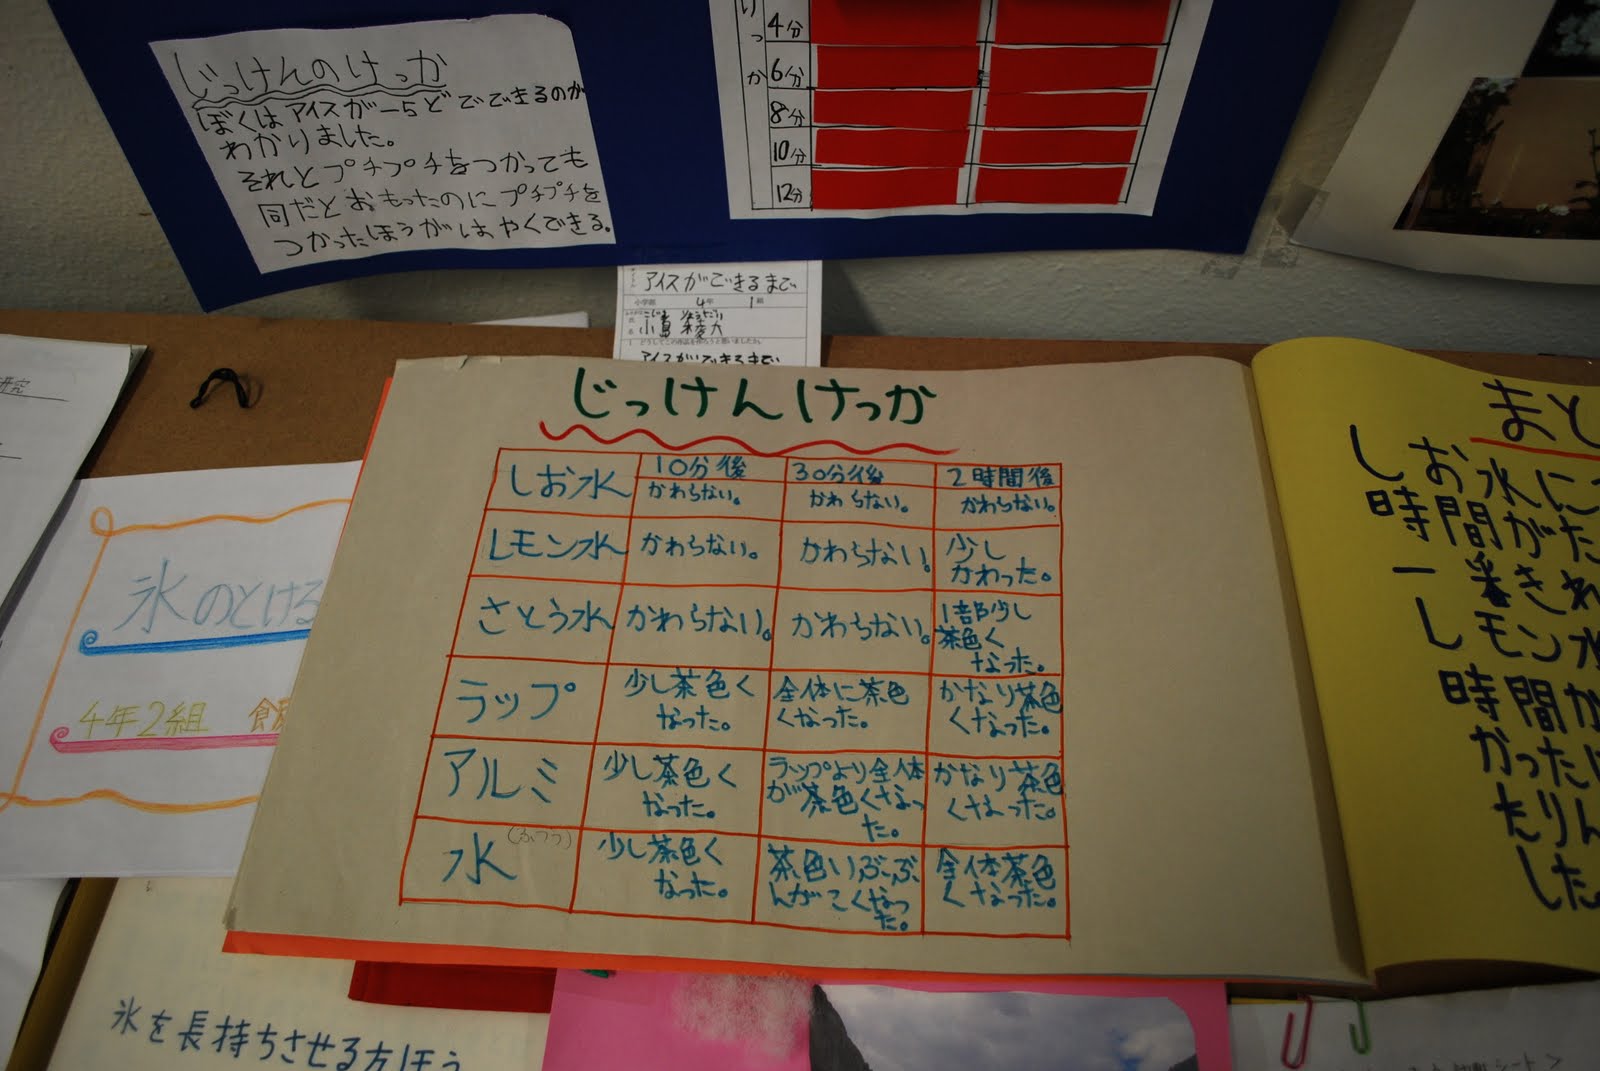 じっけんのけっか
ぼくはアイスがー5どでできるのか
わかりました。
それとプチプチをつかっても
同だとおもったのにプチプチを
つかったほうがはやくできる。
けっか
4分
6分
8分
10分
12分
アイスができるまで
小学部 4年 1組
小島
1 どうしてこの作品を作ろうと思いましたか。
アイスができるまで
研究
氷のとける
4年2組
氷を長持ちさせる方ほう
じっけんけっか
しお水 10分後 30分後 2時間後
かわらない。 かわらない。 かわらない。
レモン水 かわらない。 かわらない。 少し
かわった。
さとう水 かわらない。 かわらない。 1部少し
茶色く
なった。
ラップ 少し茶色く 全体に茶色 かなり茶色
なった。 くなった。 くなった。
アルミ 少し茶色く ラップより全体 かなり茶色
なった。 が茶色くなっ くなった。
た。
水 (ふつう) 少し茶色く 茶色いぶぶ 全体茶色
なった。 んがこくなっ くなった。
た。
まと
しお水に
時間がた
一番きれ
レモン水
時間か
かったに
たりん
した。